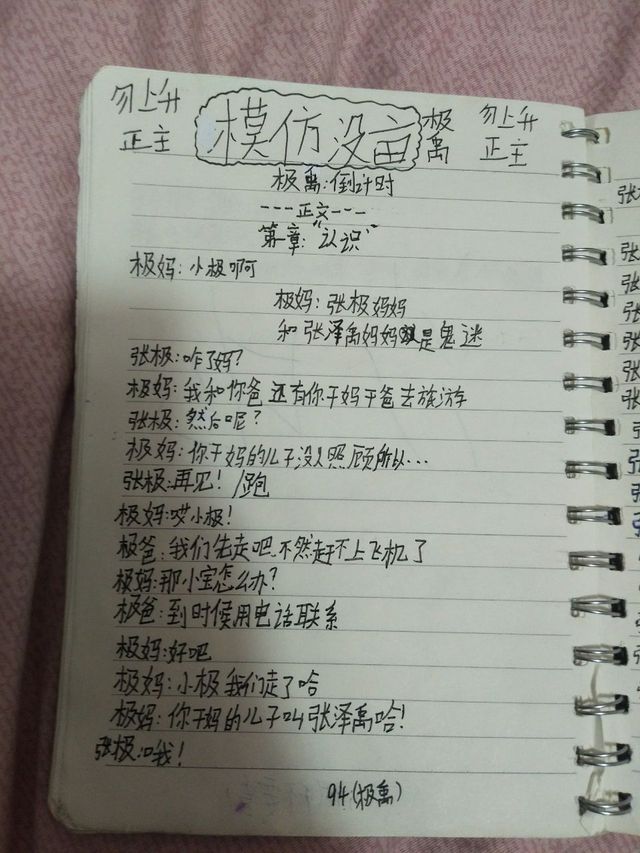 勿上升
正主
模仿没亩
极禹
勿上升
正主
极禹:倒计时
---正文---
第一章:"认识"
极妈:小极啊
极妈:张极妈妈
和张泽禹妈妈是鬼迷
张极:咋了妈?
极妈:我和你爸还有你干妈干爸去旅游
张极:然后呢?
极妈:你干妈的儿子没人照顾所以...
张极:再见!/跑
极妈:哎小极!
极爸:我们先走吧.不然赶不上飞机了
极妈:那小宝怎么办?
极爸:到时候用电话联系
极妈:好吧
极妈:小极我们走了哈
极妈:你干妈的儿子叫张泽禹哈!
张极:哦!
94(极禹)
张